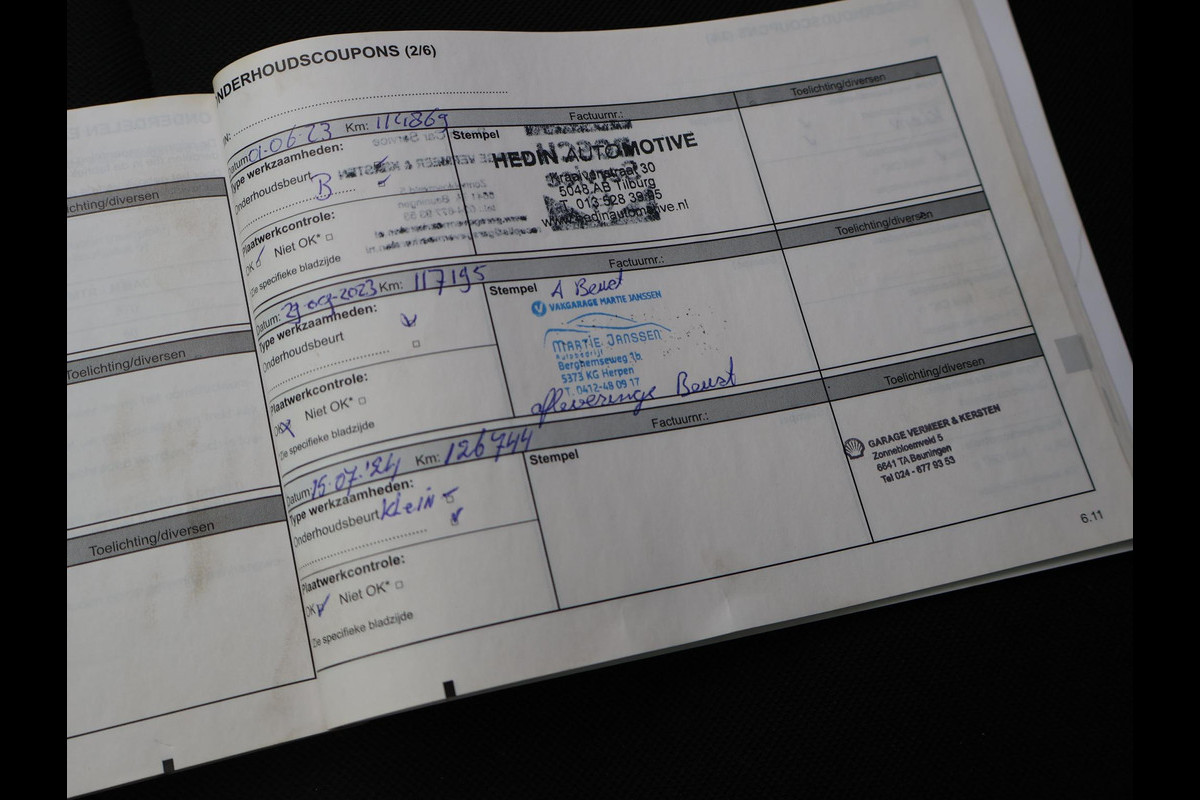 NDERHOUDSCOUPONS (2/6)
Datum: 01-06-23 Km: 114869 Factuurnr.: Toelichting/diversen
Type werkzaamheden:
Onderhoudsbeurt
B
Plaatwerkcontrole:
OK Niet OK*
Zie specifieke bladzijde
Stempel
HEDIN AUTOMOTIVE
Kraaivenstraat 30
5048 AB Tilburg
T. 013 528 39 95
www.hedinautomotive.nl
Datum: 29-09-2023 Km: 117195 Factuurnr.: Toelichting/diversen
Type werkzaamheden:
Onderhoudsbeurt
Plaatwerkcontrole:
OK Niet OK*
Zie specifieke bladzijde
Stempel A Beurt
VAKGARAGE MARTIE JANSSEN
MARTIE JANSSEN
Autobedrijf
Berghemseweg 1b
5373 KG Herpen
T. 0412-48 09 17
afleverings Beurt
Datum: 15-07-'24 Km: 126744 Factuurnr.: Toelichting/diversen
Type werkzaamheden:
Onderhoudsbeurt Klein
Plaatwerkcontrole:
OK Niet OK*
Zie specifieke bladzijde
Stempel
GARAGE VERMEER & KERSTEN
Zonnebloemveld 5
6641 TA Beuningen
Tel 024 - 677 93 53
6.11
chting/diversen
Toelichting/diversen
Toelichting/diversen